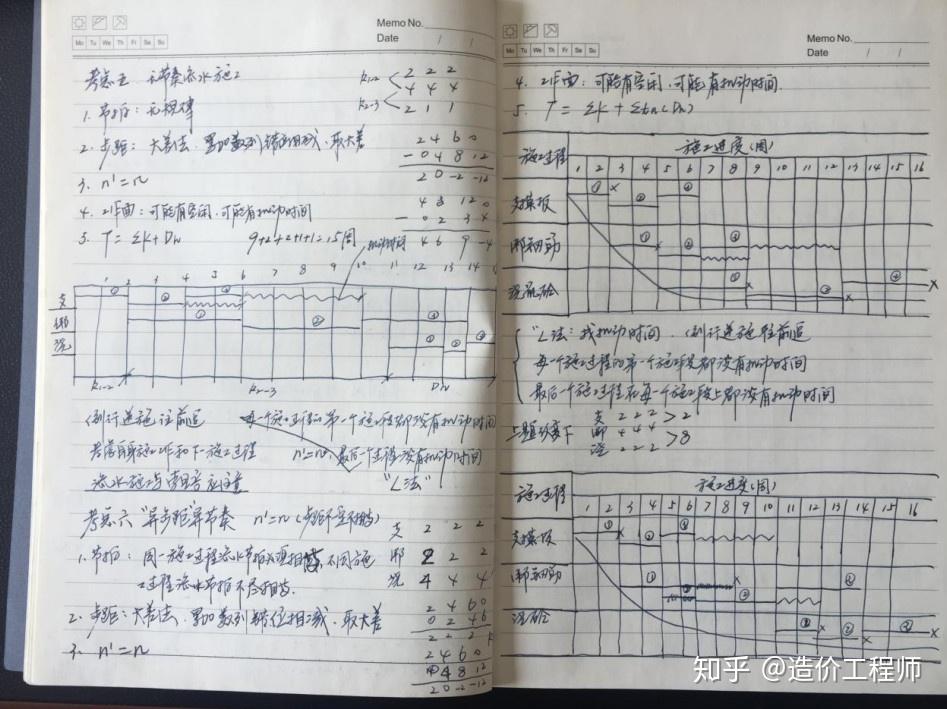 Memo No.
Date / /
Mo Tu We Th Fr Sa Su
考点五 无节奏流水施工
K1-2 2 2 2
4 4 4
K2-3 2 1 1
1. 节拍：无规律
2. 步距：大差法，累加数列错位相减，取大差
2 4 6 0
- 0 4 8 12
2 0 -2 -12
3. n'=n
4. 工作面：可能有空闲，可能有机动时间
4 8 12 0
- 0 2 3 4
4 6 9 -4
5. T=ΣK+Dn 9+2+2+1+1=15周
机动时间
1 2 3 4 5 6 7 8 9 10 11 12 13 14 15
支
绑
浇
K1-2 K2-3 Dn
倒行逆施往前追 每一个施工过程的第一个施工段都没有机动时间
n'=n 最后一个过程没有机动时间
"L法"
考点六 "异步距"异节奏 n'=n（步距不一定相等）
支 2 2 2
绑 2 2 2
浇 4 4 4
1. 节拍：同一施工过程流水节拍必须相等，不同施
工过程流水节拍不尽相等。
2. 步距：大差法，累加数列错位相减，取大差
2 4 6 0
0 2 4 6
2 2 2
3. n'=n
2 4 6 0
0 4 8 12
2 0 -2 -12
Memo No.
Date / /
Mo Tu We Th Fr Sa Su
4. 工作面：可能有空闲，可能有机动时间.
5. T=ΣK+Σtn(Dn)
施工过程 施工进度(周)
1 2 3 4 5 6 7 8 9 10 11 12 13 14 15 16
支模板
绑钢筋
浇砼
"L法：找机动时间，倒行逆施往前追
每一个施工过程的第一个施工段都没有机动时间
最后一个施工过程在每一个施工段上都没有机动时间
上题改变下
支 2 2 2 >2
绑 4 4 4 >8
浇 2 2 2
施工过程 施工进度(周)
1 2 3 4 5 6 7 8 9 10 11 12 13 14 15 16
支模板
绑钢筋
浇砼
知乎 @造价工程师